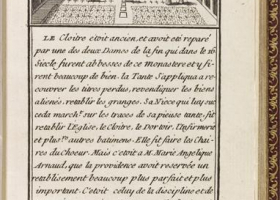 LE Cloître etoit ancien, et avoit eté reparé
par une des deux Dames de la fin qui dans le 16
Siecle, furent abbesses de ce monastere et y fi-
rent beaucoup de bien. la Tante s'appliqua a re-
couvrer les titres perdus, revendiquer les biens
alienés, retablir les granges. Sa Niece qui luy suc-
ceda marcht. sur les traces de sa pieuse tante, fit
retablir L'Eglise, le Cloitre, le Dortoir, L'Enfirmerie
et plusrs. autres batimens. Elle fit faire les Chai-
res du Choeur. Mais c'etoit a M. Marie Angelique
Arnaud, que la providence avoit reservée un
retablissement beaucoup plus parfait et plus
important. C'etoit celuy de la discipline et de